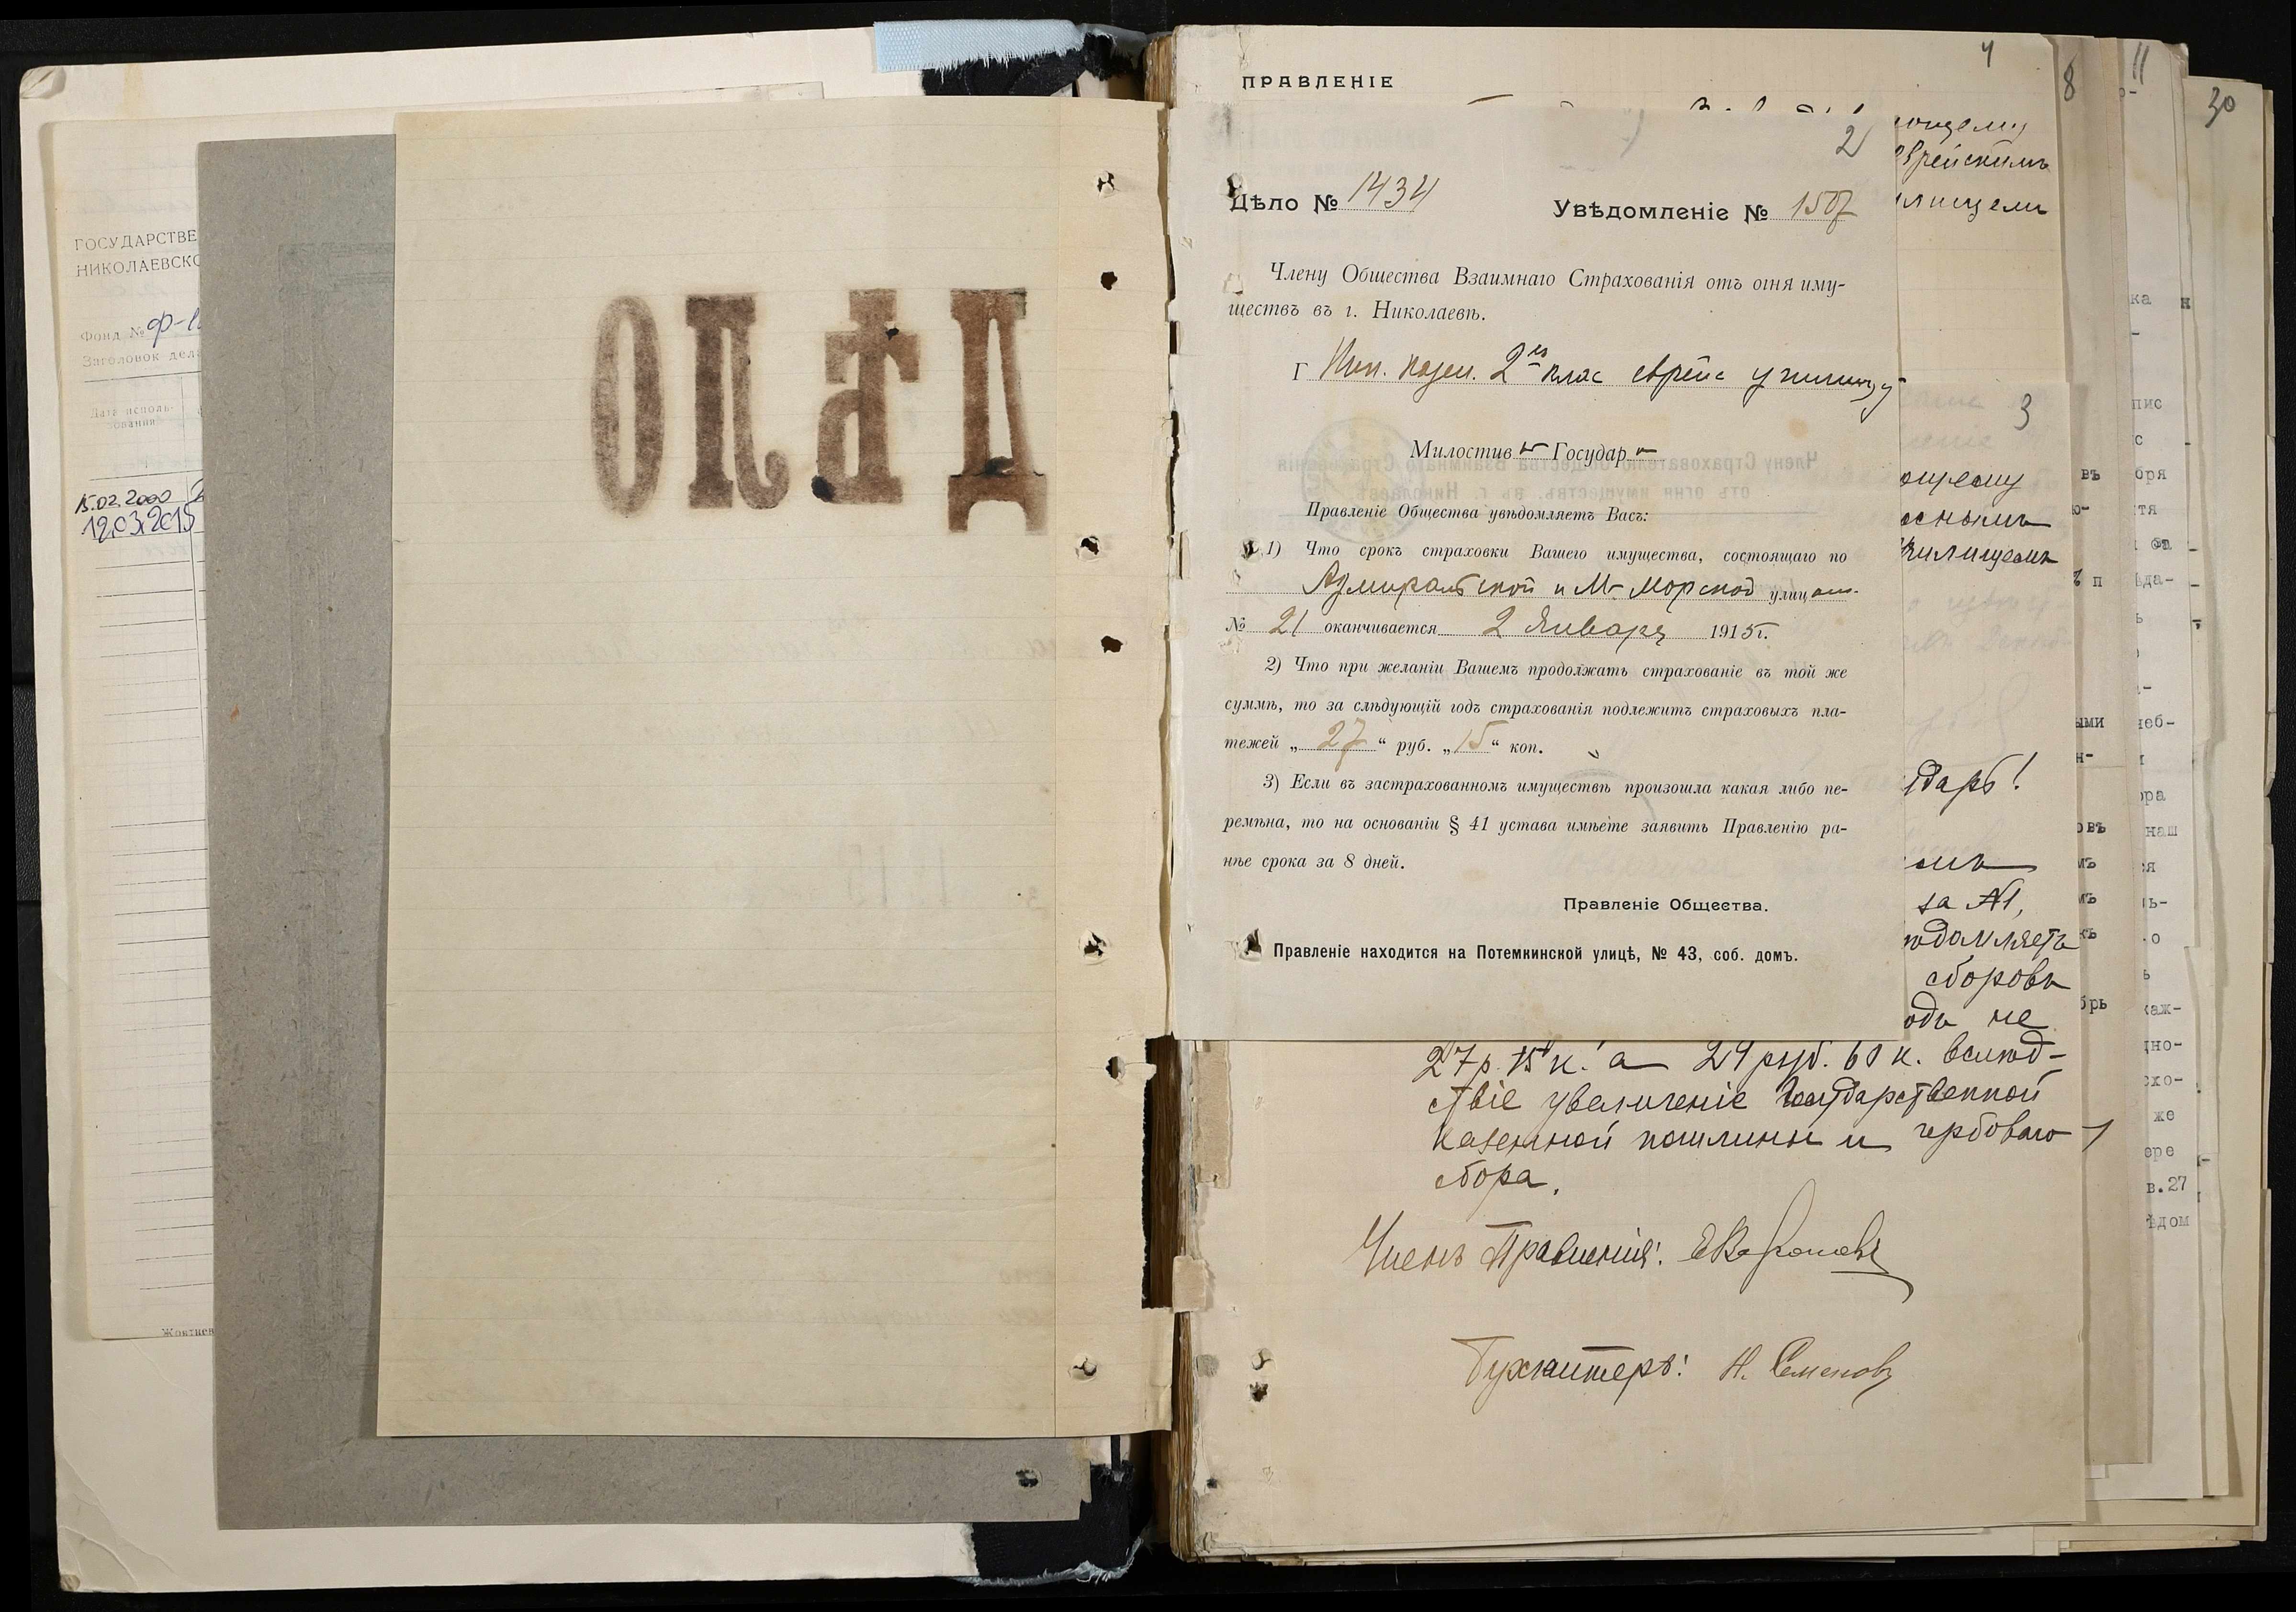 ГОСУДАРСТВЕ
НИКОЛАЕВСКО
Фонд № Ф-
Заголовок дела
Дата исполь-
зования
15.02.2000
12.03.2015
ДѢЛО
ПРАВЛЕНІЕ
4
8
11
30
2
ющему
Еврейскимъ
Дѣло № 1434 Увѣдомленіе № 1507
Члену Общества Взаимнаго Страхованія отъ огня иму-
ществъ въ г. Николаевѣ.
Г Ник. казен. 2хъ клас еврейс училищу
3
Милостив Государ
Правленіе Общества увѣдомляетъ Васъ:
1) Что срокъ страховки Вашего имущества, состоящаго по
Адмиральской и М- Морской улиц
№ 21 оканчивается 2 Января 1915г.
2) Что при желаніи Вашемъ продолжать страхованіе въ той же
суммѣ, то за слѣдующій годъ страхованія подлежитъ страховыхъ пла-
тежей „ 27 “ руб. „ 15 “ коп.
3) Если въ застрахованномъ имуществѣ произошла какая либо пе-
ремѣна, то на основаніи § 41 устава имѣете заявить Правленію ра-
нѣе срока за 8 дней.
Правленіе Общества.
Правленіе находится на Потемкинской улицѣ, № 43, соб. домъ.
училищемъ
дарь!
за №1,
домляетъ
сборовъ
одъ не
27 р. 15 к. а 29 руб. 60 к. вслѣд-
ствіе увеличеніе Государственной
казенной пошлины и гербоваго
сбора.
Членъ Правленія:
Бухгалтеръ: Н. Семеновъ